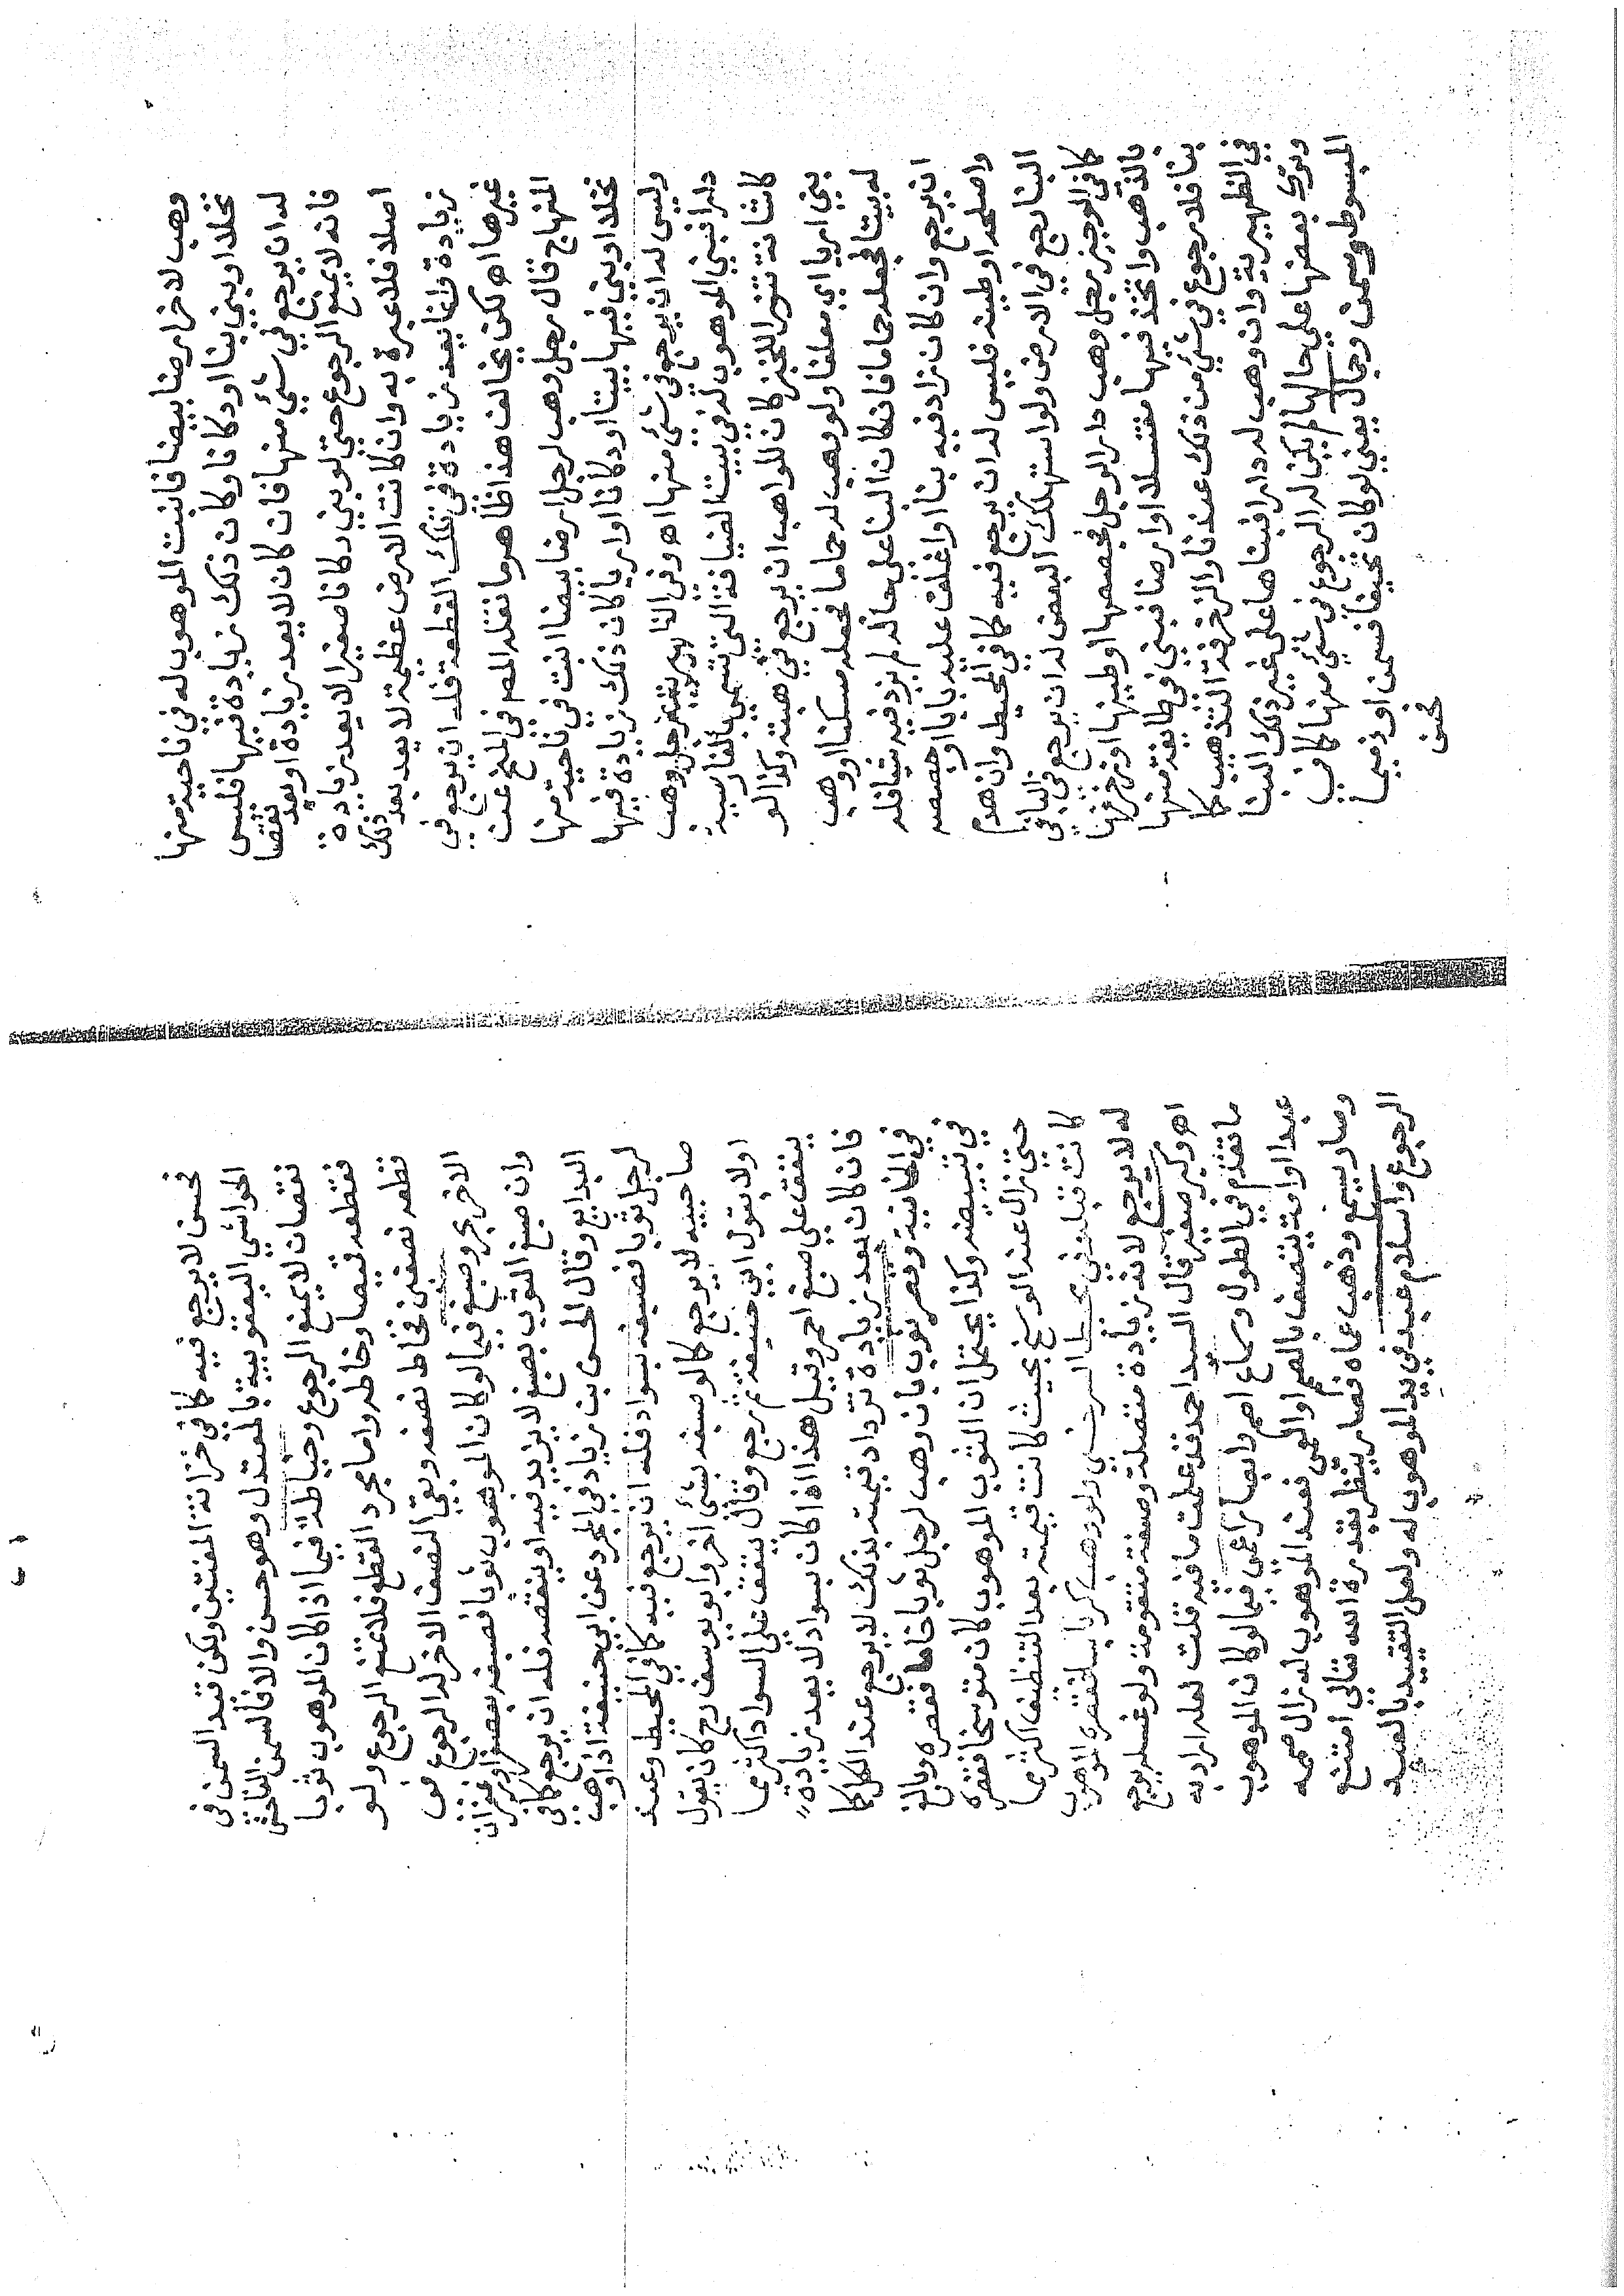 وهب لاخر ارضا بيضا فانبت الموهوب له في ناحية منها
نخلا او بنى بنا او دكانا وكان ذلك زيادة فيها فليس
له ان يرجع في شئ منها فان كان لا يعد زيادة او يعد نقصا
فانه لا يمنع الرجوع حتى لو بنى دكانا صغيرا لا يعد زيادة
اصلا فلا عبرة به وان كانت الارض عظيمة لا يعد بعد ذلك
زيادة وانما يعد زيادة في تلك القطعة فله ان يرجع في
غيرها اه لكن يخالف هذا ظاهر ما نقله المص في المنح عن
المنهاج قال رجل وهب لرجل ارضا بيضا انبت في ناحية منها
نخلا او بنى فيها بيتا او دكانا او اريا كان ذلك زيادة فيها
وليس له ان يرجع في شئ منها اه وفي رجل وهب
دارا فبنى الموهوب له في بيت الضيافة التي تسمى بالفارسية
كاشانه تنورا للخبز كان للواهب ان يرجع في هبته وكذا لو
بنى اريا اي معلفا ولو وهب له حماما فجعله مسكنا او وهب
له بيتا فجعله حماما فان كان البنا على حاله لم يزد فيه شيا فله
ان يرجع وان كان زاد فيه بنا او اغلق عليه بابا او جصصه
واصلحه او طينه فليس له ان يرجع فيه كما في المحيط وان هدم
البنا رجع في الارض ولو استهلك البعض له ان يرجع في الباقي
كما في الوجيز رجل وهب دارا لرجل فجصصها او طينها او زخرفها
بالذهب واتخذ فيها مغتسلا او ارضا فبنى في طايفة منها
بنا فلا رجوع في شئ من ذلك عندنا والزخرفة التذهيب كما
في الظهيرية وان وهب له دارا فبناها على غير ذلك البنا
وترك بعضها على حالها لم يكن له الرجوع في شئ منها كما في
المبسوط وسمن وجمال يعني لو كان نحيفا فسمن او ذميما
فحسن
فحسن لا يرجع فيه كما في خزانة المفتين ولكن قيد السمن في
الحواشي اليعقوبية بالمعتدل وهو حسن والا فالسمن الفاحش
نقصان لا يمنع الرجوع وخياطة فيما اذا كان الموهوب ثوبا
فقطعه قميصا وخاطه واما مجرد القطع فلا يمنع الرجوع ولو
قطعه نصفين فخاط نصفه وبقي النصف الاخر له الرجوع في
الاخر بحر وصبغ فيما لو كان الموهوب ثوبا فصبغه بعصفر او زعفران
وان صبغ الثوب بصبغ لا يزيد فيه او ينقصه فله ان يرجع كما في
البدايع وقال الحسن بن زياد في المجرد عن ابي حنيفة اذا وهب
لرجل ثوبا فصبغه بسواد فله ان يرجع فيه كما في المحيط وعند
صاحبيه لا يرجع كما لو صبغه بشئ اخر وابو يوسف رح كان يقول
اولا بقول ابي حنيفة ثم رجع وقال ينفق على السواد اكثر مما
ينفق على صبغ احمر وقيل هذا اذا كان بسواد لا يعد زيادة
فان كان يعد زيادة تزداد قيمته بذلك لا يرجع عند الكل كما
في الخانية وقصر ثوب بان وهب لرجل ثوبا خاما فقصره وبالغ
في تبييضه وكذا يحتمل ان الثوب الموهوب كان متوسخا فقصره
حتى زال عنه الوسخ بحيث كانت قيمته بعد التنظف اكثر مما
كانت قبله وفي محيط السرخسي ولو وهب كرباسا فقصره الموهوب
له لا يرجع لانه زيادة متصلة وصفة متقومة ولو غسله يرجع
اه وكبر صغير قال السيد احمد قد علمت ما فيه قلت لعله اراد به
ما تقدم في الطول وسماع اصم وابصار اعمى فيما لو كان الموهوب
عبدا او امة يتصف بالصم او العمى فعند الموهوب له زال صممه
وصار يسمع وذهب عماه فصار ينظر بقدرة الله تعالى امتنع
الرجوع واسلام عبد في يد الموهوب له ولعل التقييد بالعبد